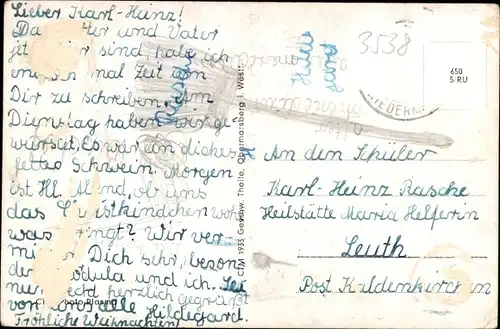 Lieber Karl-Heinz!
Da und Vater
jet hier sind, habe ich
mal Zeit
Dir zu schreiben. Am
Dienstag haben wir ge-
wurstet. Es war ein dickes
fettes Schwein. Morgen
ist Hl. Abend, ob uns
das Christkindchen wohl
was bringt? Wir ver-
mi Dich sehr, beson
der und ich. Sei
nun recht herzlich gegrüßt
von uns alle Hildegard.
Fröhliche Weihnachten!
Photo
CTM 1955 Geschw. Theile, Obermarsberg i. Westf.
3538
Hilde
gard
NIEDERM
650
5 RU
An den Schüler
Karl-Heinz Rasche
Heilstätte Maria Helferin
Leuth
Post Kaldenkirchen